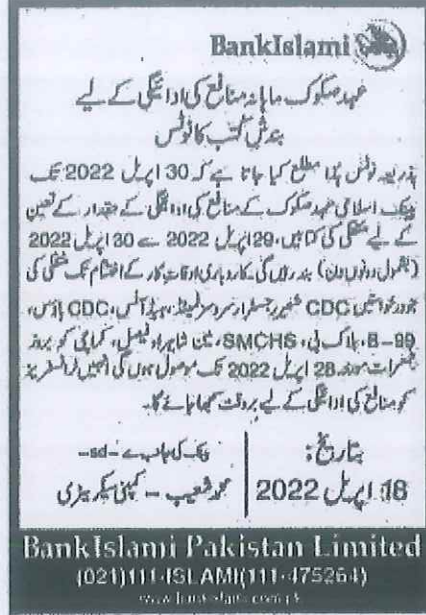 BankIslami
عہد صکوک ماہانہ منافع کی ادائیگی کے لیے
بندش کتب کا نوٹس
بذریعہ نوٹس ہٰذا مطلع کیا جاتا ہے کہ 30 اپریل 2022 تک
بینک اسلامی عہد صکوک کے منافع کی ادائیگی کے حقدار کے تعین
کے لیے منتقلی کی کتابیں، 29 اپریل 2022 سے 30 اپریل 2022
(بشمول دونوں دن) بند رہیں گی۔ کاروباری اوقات کار کے اختتام تک منتقلی کی
جو درخواستیں CDC شیئر رجسٹرار سروسز لمیٹڈ، ہیڈ آفس، CDC ہاؤس،
99-B، بلاک بی، SMCHS، مین شاہراہ فیصل، کراچی کو بروز
جمعرات مورخہ 28 اپریل 2022 تک موصول ہوں گی انہیں ٹرانسفریز
کو منافع کی ادائیگی کے لیے بروقت سمجھا جائے گا۔
بتاریخ:
18 اپریل 2022
بینک کی جانب سے -sd-
محمد شعیب - کمپنی سیکریٹری
BankIslami Pakistan Limited
(021)111-ISLAMI(111-475264)
www.bankislami.com.pk